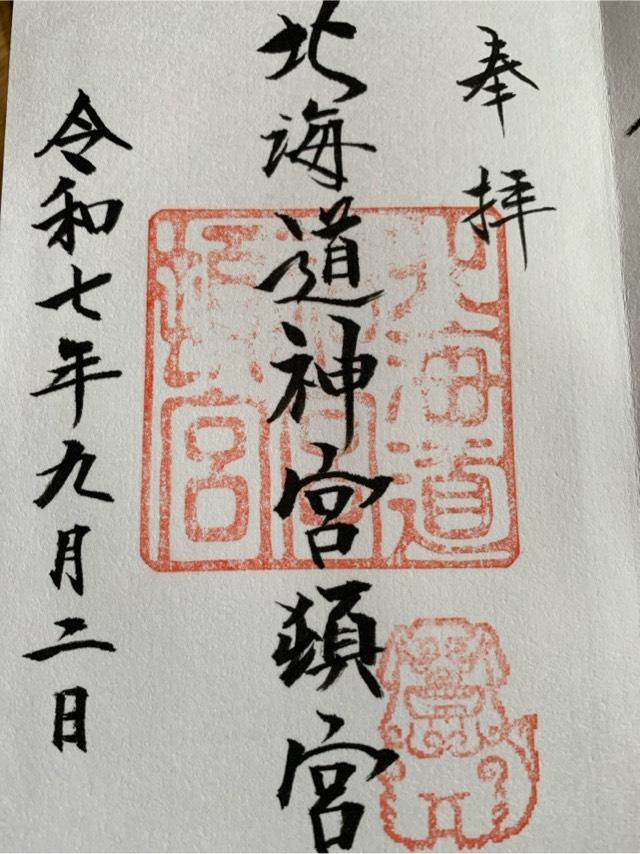 奉拝
北海道神宮頓宮
令和七年九月二日
北海道
神宮
頓宮